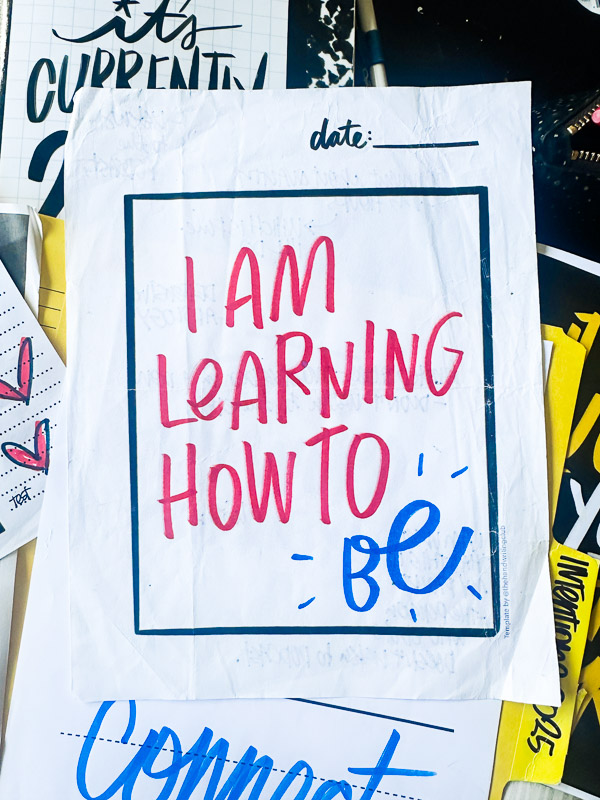 it's
CURRENTLY
date:
I AM
LeARNING
HOW TO
Be
test
Intentions 2025
Connect